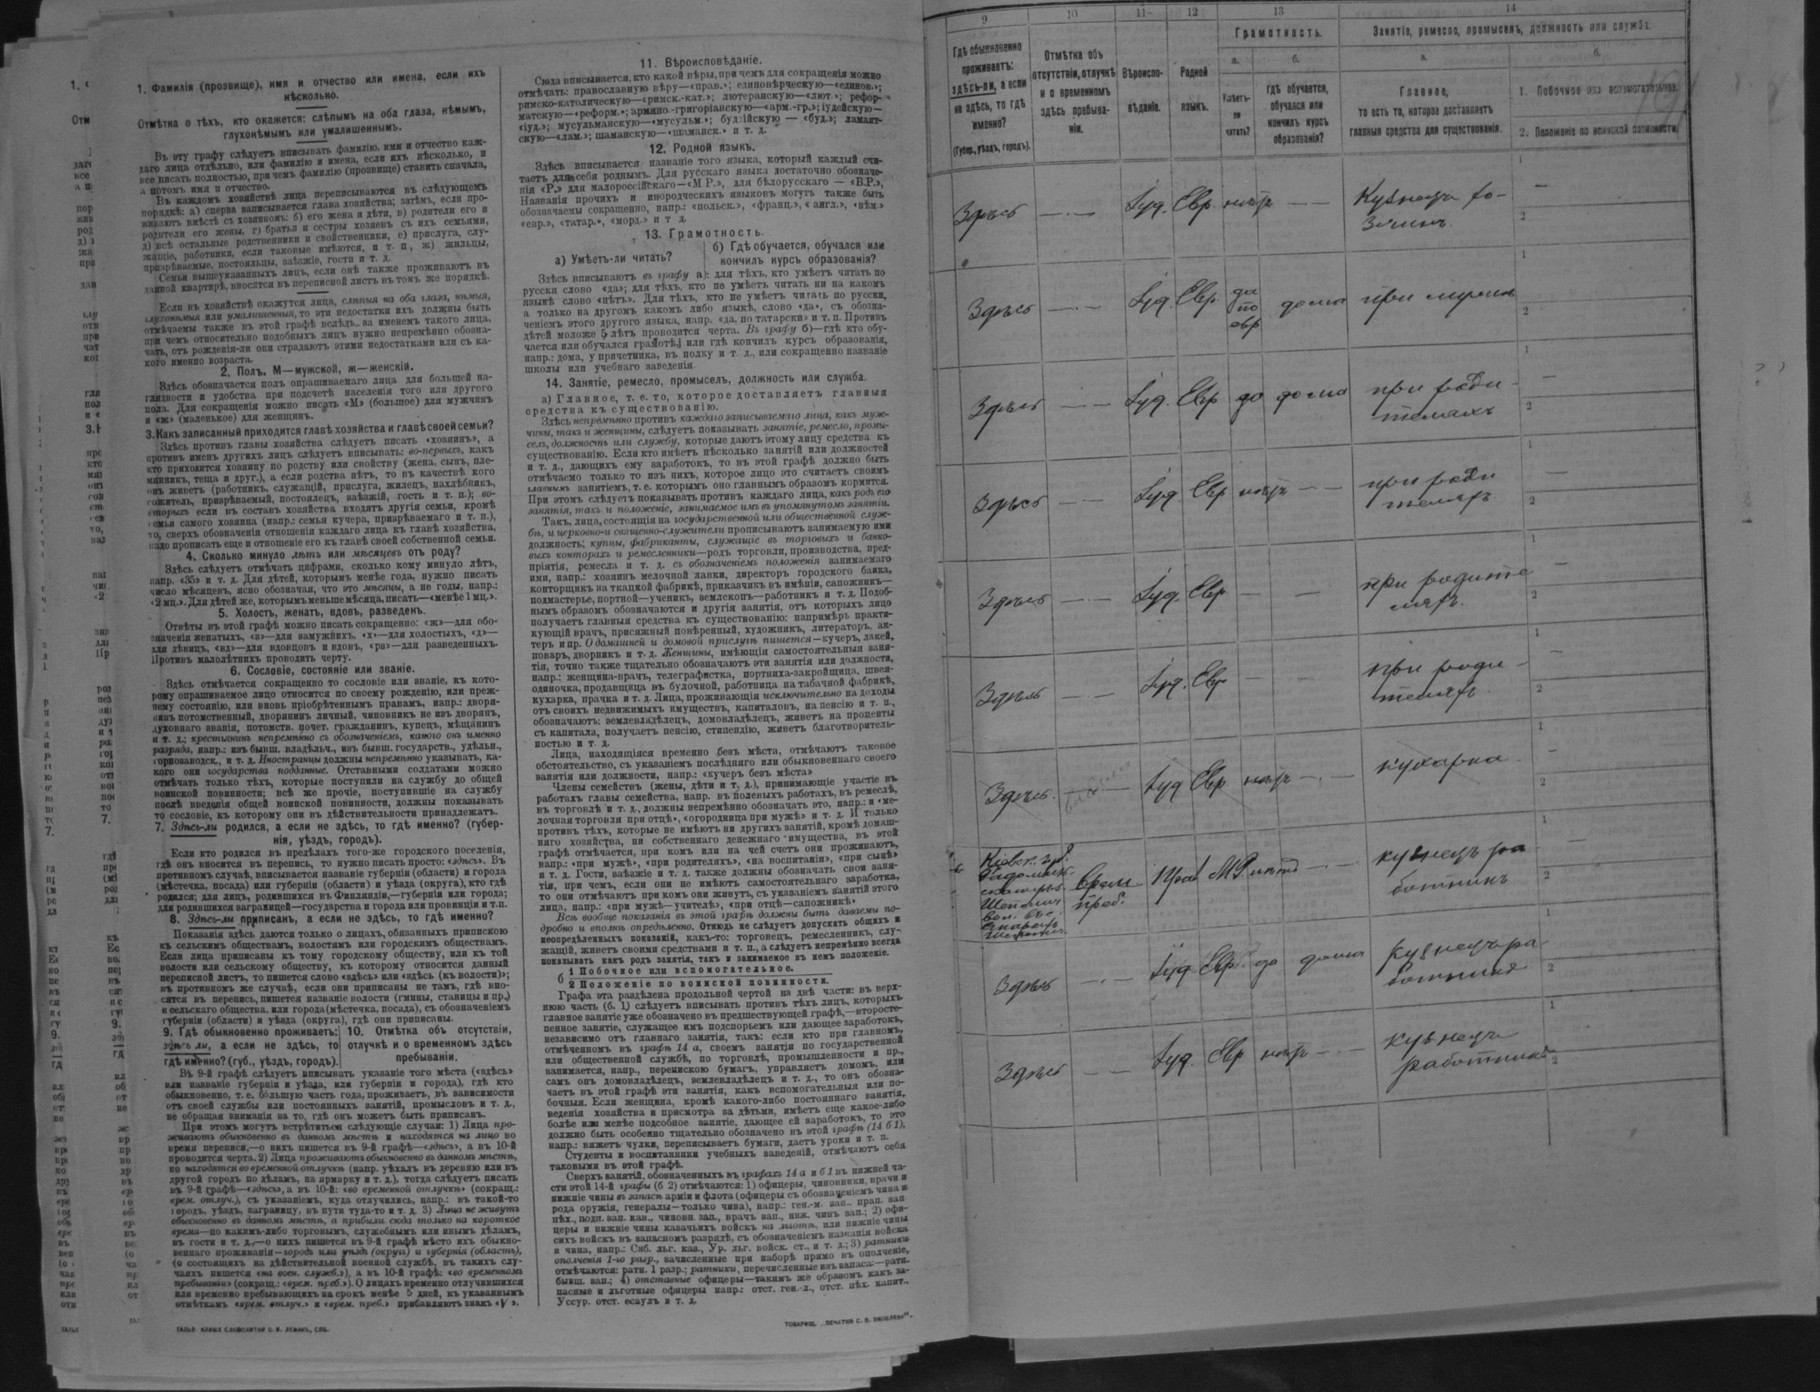 1. Фамилія (прозвище), имя и отчество или имена, если ихъ
нѣсколько.
Отмѣтка о тѣхъ, кто окажется: слѣпымъ на оба глаза, нѣмымъ,
глухонѣмымъ или умалишеннымъ.
Въ эту графу слѣдуетъ вписывать фамилію, имя и отчество каж-
даго лица отдѣльно, или фамилію и имена, если ихъ нѣсколько, и
все писать полностью, при чемъ фамилію (прозвище) ставить сначала,
а потомъ имя и отчество.
Въ каждомъ хозяйствѣ лица переписываются въ слѣдующемъ
порядкѣ: а) сперва записывается глава хозяйства; затѣмъ, если про-
живаютъ вмѣстѣ съ хозяиномъ: б) его жена и дѣти, в) родители его и
родители его жены, г) братья и сестры хозяевъ съ ихъ семьями,
д) всѣ остальные родственники и свойственники, е) прислуга, слу-
жащіе, работники, если таковые имѣются, и т. п., ж) жильцы,
призрѣваемые, постояльцы, заѣзжіе, гости и т. д.
Семьи вышеуказанныхъ лицъ, если онѣ также проживаютъ въ
данной квартирѣ, вносятся въ переписной листъ въ томъ же порядкѣ.
Если въ хозяйствѣ окажутся лица, слѣпыя на оба глаза, нѣмыя,
глухонѣмыя или умалишенныя, то эти недостатки ихъ должны быть
отмѣчаемы также въ этой графѣ вслѣдъ за именемъ такого лица,
при чемъ относительно подобныхъ лицъ нужно непремѣнно обозна-
чать, отъ рожденія-ли они страдаютъ этими недостатками или съ ка-
кого именно возраста.
2. Полъ, М—мужской, ж—женскій.
Здѣсь обозначается полъ опрашиваемаго лица для большей на-
глядности и удобства при подсчетѣ населенія того или другого
пола. Для сокращенія можно писать «М» (большое) для мужчинъ
и «ж» (маленькое) для женщинъ.
3. Какъ записанный приходится главѣ хозяйства и главѣ своей семьи?
Здѣсь противъ главы хозяйства слѣдуетъ писать «хозяинъ», а
противъ именъ другихъ лицъ слѣдуетъ вписывать: во-первыхъ, какъ
кто приходится хозяину по родству или свойству (жена, сынъ, пле-
мянникъ, теща и друг.), а если родства нѣтъ, то въ качествѣ кого
онъ живетъ (работникъ, служащій, прислуга, жилецъ, нахлѣбникъ,
сожитель, призрѣваемый, постоялецъ, заѣзжій, гость и т. п.); во-
вторыхъ если въ составъ хозяйства входятъ другія семьи, кромѣ
семьи самого хозяина (напр.: семья кучера, призрѣваемаго и т. п.),
то, сверхъ обозначенія отношенія каждаго лица къ главѣ хозяйства,
надо прописать еще и отношеніе его къ главѣ своей собственной семьи.
4. Сколько минуло лѣтъ или мѣсяцевъ отъ роду?
Здѣсь слѣдуетъ отмѣчать цифрами, сколько кому минуло лѣтъ,
напр. «35» и т. д. Для дѣтей, которымъ менѣе года, нужно писать
число мѣсяцевъ, ясно обозначая, что это мѣсяцы, а не годы, напр.:
«2 мц.». Для дѣтей же, которымъ меньше мѣсяца, писать—«менѣе 1 мц.».
5. Холостъ, женатъ, вдовъ, разведенъ.
Отвѣты въ этой графѣ можно писать сокращенно: «ж»—для обо-
значенія женатыхъ, «з»—для замужнихъ, «х»—для холостыхъ, «д»—
для дѣвицъ, «вд»—для вдовцовъ и вдовъ, «рз»—для разведенныхъ.
Противъ малолѣтнихъ проводить черту.
6. Сословіе, состояніе или званіе.
Здѣсь отмѣчается сокращенно то сословіе или званіе, къ кото-
рому опрашиваемое лицо относится по своему рожденію, или преж-
нему состоянію, или вновь пріобрѣтеннымъ правамъ, напр.: дворя-
нинъ потомственный, дворянинъ личный, чиновникъ не изъ дворянъ,
духовнаго званія, потомств. почет. гражданинъ, купецъ, мѣщанинъ
и т. д.; крестьянинъ непремѣнно съ обозначеніемъ, какого онъ именно
разряда, напр.: изъ бывш. владѣльч., изъ бывш. государств., удѣльн.,
горнозаводск., и т. д. Иностранцы должны непремѣнно указывать, ка-
кого они государства подданные. Отставными солдатами можно
отмѣчать только тѣхъ, которые поступили на службу до общей
воинской повинности; всѣ же прочіе, поступившіе на службу
послѣ введенія общей воинской повинности, должны показывать
то сословіе, къ которому они въ дѣйствительности принадлежатъ.
7. Здѣсь-ли родился, а если не здѣсь, то гдѣ именно? (губер-
нія, уѣздъ, городъ).
Если кто родился въ предѣлахъ того-же городского поселенія,
гдѣ онъ вносится въ перепись, то нужно писать просто: «здѣсь». Въ
противномъ случаѣ, вписывается названіе губерніи (области) и города
(мѣстечка, посада) или губерніи (области) и уѣзда (округа), кто гдѣ
родился; для лицъ, родившихся въ Финляндіи,—губерніи или города;
для родившихся заграницей—государства и города или провинціи и т.п.
8. Здѣсь-ли приписанъ, а если не здѣсь, то гдѣ именно?
Показанія здѣсь даются только о лицахъ, обязанныхъ припискою
къ сельскимъ обществамъ, волостямъ или городскимъ обществамъ.
Если лица приписаны къ тому городскому обществу, или къ той
волости или сельскому обществу, къ которому относится данный
переписной листъ, то пишется слово «здѣсь» или «здѣсь (къ волости)»;
въ противномъ же случаѣ, если они приписаны не тамъ, гдѣ вно-
сятся въ перепись, пишется названіе волости (гмины, станицы и пр.)
и сельскаго общества, или города (мѣстечка, посада), съ обозначеніемъ
губерніи (области) и уѣзда (округа), гдѣ они приписаны.
9. Гдѣ обыкновенно проживаетъ: здѣсь ли, а если не здѣсь, то гдѣ именно? (губ., уѣздъ, городъ).
10. Отмѣтка объ отсутствіи, отлучкѣ и о временномъ здѣсь пребываніи.
Въ 9-й графѣ слѣдуетъ вписывать указаніе того мѣста («здѣсь»
или названіе губерніи и уѣзда, или губерніи и города), гдѣ кто
обыкновенно, т. е. бо́льшую часть года, проживаетъ, въ зависимости
отъ своей службы или постоянныхъ занятій, промысловъ и т. д.,
не обращая вниманія на то, гдѣ онъ можетъ быть приписанъ.
При этомъ могутъ встрѣтиться слѣдующіе случаи: 1) Лица про-
живаютъ обыкновенно въ данномъ мѣстѣ и находятся на лицо во
время переписи,—о нихъ пишется въ 9-й графѣ—«здѣсь», а въ 10-й
проводится черта. 2) Лица проживаютъ обыкновенно въ данномъ мѣстѣ,
но находятся во временной отлучкѣ (напр. уѣхалъ въ деревню или въ
другой городъ по дѣламъ, на ярмарку и т. д.), тогда слѣдуетъ писать
въ 9-й графѣ—«здѣсь», а въ 10-й: «во временной отлучкѣ» (сокращ.:
«врем. отлуч.»), съ указаніемъ, куда отлучились, напр.: въ такой-то
городъ, уѣздъ, заграницу, въ пути туда-то и т. д. 3) Лица не живутъ
обыкновенно въ данномъ мѣстѣ, а прибыли сюда только на короткое
время—по какимъ-либо торговымъ, служебнымъ или инымъ дѣламъ,
въ гости и т. д.,—о нихъ пишется въ 9-й графѣ мѣсто ихъ обыкно-
веннаго проживанія—городъ или уѣздъ (округъ) и губернія (область),
(о состоящихъ на дѣйствительной военной службѣ, въ такихъ слу-
чаяхъ пишется «на воен. службѣ»), а въ 10-й графѣ: «во временномъ
пребываніи» (сокращ.: «врем. преб.»). О лицахъ временно отлучившихся
или временно пребывающихъ на срокъ менѣе 5 дней, къ указаннымъ
отмѣткамъ «врем. отлуч.» и «врем. преб.» прибавляютъ знакъ «V».
11. Вѣроисповѣданіе.
Сюда вписывается, кто какой вѣры, при чемъ для сокращенія можно
отмѣчать: православную вѣру—«прав.»; единовѣрческую—«единов.»;
римско-католическую—«римск.-кат.»; лютеранскую—«лют.»; рефор-
матскую—«реформ.»; армяно-григоріанскую—«арм.-гр.»; іудейскую—
«іуд.»; мусульманскую—«мусульм.»; буддійскую — «буд.»; ламаит-
скую—«лам.»; шаманскую—«шаманск.» и т. д.
12. Родной языкъ.
Здѣсь вписывается названіе того языка, который каждый счи-
таетъ для себя роднымъ. Для русскаго языка достаточно обозначе-
нія «Р.» для малороссійскаго—«М.Р.», для бѣлорусскаго — «Б.Р.»,
Названія прочихъ и инородческихъ языковъ могутъ также быть
обозначаемы сокращенно, напр.: «польск.», «франц.», «англ.», «нѣм.»
«евр.», «татар.», «морд.» и т. д.
13. Грамотность.
а) Умѣетъ-ли читать?
б) Гдѣ обучается, обучался или
кончилъ курсъ образованія?
Здѣсь вписываютъ въ графу а): для тѣхъ, кто умѣетъ читать по
русски слово «да»; для тѣхъ, кто не умѣетъ читать ни на какомъ
языкѣ слово «нѣтъ». Для тѣхъ, кто не умѣетъ читать по русски,
а только на другомъ какомъ либо языкѣ, слово «да», съ обозна-
ченіемъ этого другого языка, напр. «да, по татарски» и т. п. Противъ
дѣтей моложе 5 лѣтъ проводится черта. Въ графу б)—гдѣ кто обу-
чается или обучался грамотѣ, или гдѣ кончилъ курсъ образованія,
напр.: дома, у причетника, въ полку и т. д., или сокращенно названіе
школы или учебнаго заведенія.
14. Занятіе, ремесло, промыселъ, должность или служба.
а) Главное, т. е. то, которое доставляетъ главныя
средства къ существованію.
Здѣсь непремѣнно противъ каждаго записываемаго лица, какъ муж-
чины, такъ и женщины, слѣдуетъ показывать занятіе, ремесло, промы-
селъ, должность или службу, которые даютъ этому лицу средства къ
существованію. Если кто имѣетъ нѣсколько занятій или должностей
и т. д., дающихъ ему заработокъ, то въ этой графѣ должно быть
отмѣчаемо только то изъ нихъ, которое лицо это считаетъ своимъ
главнымъ занятіемъ, т. е. которымъ оно главнымъ образомъ кормится.
При этомъ слѣдуетъ показывать противъ каждаго лица, какъ родъ его
занятія, такъ и положеніе, занимаемое имъ въ упомянутомъ занятіи.
Такъ, лица, состоящія на государственной или общественной служ-
бѣ, и церковно-и священно-служители прописываютъ занимаемую ими
должность; купцы, фабриканты, служащіе въ торговыхъ и банко-
выхъ конторахъ и ремесленники—родъ торговли, производства, пред-
пріятія, ремесла и т. д. съ обозначеніемъ положенія занимаемаго
ими, напр.: хозяинъ мелочной лавки, директоръ городского банка,
конторщикъ на ткацкой фабрикѣ, приказчикъ въ имѣніи, сапожникъ—
подмастерье, портной—ученикъ, землекопъ—работникъ и т. д. Подоб-
нымъ образомъ обозначаются и другія занятія, отъ которыхъ лицо
получаетъ главныя средства къ существованію: напримѣръ практи-
кующій врачъ, присяжный повѣренный, художникъ, литераторъ, ак-
теръ и пр. О домашней и домовой прислугѣ пишется—кучеръ, лакей,
поваръ, дворникъ и т. д. Женщины, имѣющія самостоятельныя заня-
тія, точно также тщательно обозначаютъ эти занятія или должности,
напр.: женщина-врачъ, телеграфистка, портниха-закройщица, швея-
одиночка, продавщица въ булочной, работница на табачной фабрикѣ,
кухарка, прачка и т. д. Лица, проживающія исключительно на доходы
отъ своихъ недвижимыхъ имуществъ, капиталовъ, на пенсію и т. п.,
обозначаютъ: землевладѣлецъ, домовладѣлецъ, живетъ на проценты
съ капитала, получаетъ пенсію, стипендію, живетъ благотворитель-
ностью и т. д.
Лица, находящіяся временно безъ мѣста, отмѣчаютъ таковое
обстоятельство, съ указаніемъ послѣдняго или обыкновеннаго своего
занятія или должности, напр.: «кучеръ безъ мѣста»
Члены семейства (жены, дѣти и т. д.), принимающіе участіе въ
работахъ главы семейства, напр. въ полевыхъ работахъ, въ ремеслѣ,
въ торговлѣ и т. д., должны непремѣнно обозначать это, напр.: «ме-
лочная торговля при отцѣ», «огородница при мужѣ» и т. д. И только
противъ тѣхъ, которые не имѣютъ ни другихъ занятій, кромѣ домаш-
няго хозяйства, ни собственнаго денежнаго имущества, въ этой
графѣ отмѣчается, при комъ или на чей счетъ они проживаютъ,
напр.: «при мужѣ», «при родителяхъ», «на воспитаніи», «при сынѣ»
и т. д. Гости, заѣзжіе и т. д. также должны обозначать свои заня-
тія, при чемъ, если они не имѣютъ самостоятельнаго заработка,
то они отмѣчаютъ при комъ они живутъ, съ указаніемъ занятій этого
лица, напр.: «при мужѣ—учителѣ», «при отцѣ—сапожникѣ»
Всѣ вообще показанія въ этой графѣ должны быть даваемы по-
дробно и вполнѣ опредѣленно. Отнюдь не слѣдуетъ допускать общихъ и
неопредѣленныхъ показаній, какъ-то: торговецъ, ремесленникъ, слу-
жащій, живетъ своими средствами и т. п., а слѣдуетъ непремѣнно всегда
показывать какъ родъ занятія, такъ и занимаемое въ немъ положеніе.
б
1 Побочное или вспомогательное.
2 Положеніе по воинской повинности.
Графа эта раздѣлена продольной чертой на двѣ части: въ верх-
нюю часть (б. 1) слѣдуетъ вписывать противъ тѣхъ лицъ, которыхъ
главное занятіе уже обозначено въ предшествующей графѣ,—второсте-
пенное занятіе, служащее имъ подспорьемъ или дающее заработокъ,
независимо отъ главнаго занятія, такъ: если кто при главномъ,
отмѣченномъ въ графѣ 14 а, своемъ занятіи по государственной
или общественной службѣ, по торговлѣ, промышленности и пр.,
занимается, напр., перепискою бумагъ, управляетъ домомъ, или
самъ онъ домовладѣлецъ, землевладѣлецъ и т. д., то онъ обозна-
чаетъ въ этой графѣ эти занятія, какъ вспомогательныя или по-
бочныя. Если женщина, кромѣ какого-либо постояннаго занятія,
веденія хозяйства и присмотра за дѣтьми, имѣетъ еще какое-либо
болѣе или менѣе подсобное занятіе, дающее ей заработокъ, то это
должно быть особенно тщательно обозначено въ этой графѣ (14 б 1),
напр.: вяжетъ чулки, переписываетъ бумаги, даетъ уроки и т. п.
Студенты и воспитанники учебныхъ заведеній, отмѣчаютъ себя
таковыми въ этой графѣ.
Сверхъ занятій, обозначенныхъ въ графахъ 14 а и б 1 въ нижней ча-
сти этой 14-й графы (б 2) отмѣчаются: 1) офицеры, чиновники, врачи и
нижніе чины въ запасѣ арміи и флота (офицеры съ обозначеніемъ чина и
рода оружія, генералы—только чина), напр.: ген.-м. зап., прап. зап
пѣх., подп. зап. кав., чиновн. зап., врачъ зап., ниж. чинъ зап.; 2) офи-
церы и нижніе чины казачьихъ войскъ на льготѣ, или нижніе чины
сихъ войскъ въ запасномъ разрядѣ, съ обозначеніемъ названія войска
и чина, напр.: Сиб. льг. каз., Ур. льг. войск. ст., и т. д.; 3) ратники
ополченія 1-го разр., зачисленные при наборѣ прямо въ ополченіе,
отмѣчаются: ратн. 1 разр.; ратники, перечисленные изъ запаса:—ратн.
бывш. зап.; 4) отставные офицеры—такимъ же образомъ какъ за-
пасные и льготные офицеры напр.: отст. ген.-л., отст. пѣх. капит.,
Уссур. отст. есаулъ и т. д.
9 10 11 12 13 14
Гдѣ обыкновенно проживаетъ: здѣсь-ли, а если не здѣсь, то гдѣ именно? (Губер., уѣздъ, городъ).
Отмѣтка объ отсутствіи, отлучкѣ и о временномъ здѣсь пребываніи.
Вѣроиспо-вѣданіе.
Родной языкъ.
Грамотность.
а. Умѣетъ-ли читать?
б. гдѣ обучается, обучался или кончилъ курсъ образованія?
Занятіе, ремесло, промыселъ, должность или служба.
а. Главное, то есть то, которое доставляетъ главныя средства для существованія.
б. 1. Побочное или вспомогательное.
2. Положеніе по воинской повинности.
Здѣсь — Іуд. Евр. нѣтъ — Кузнецъ хо-
зяинъ
Здѣсь — Іуд. Евр. да по евр. дома при мужѣ
Здѣсь — Іуд. Евр. да дома при роди-
теляхъ
Здѣсь — Іуд. Евр. нѣтъ — при роди
теляхъ
Здѣсь — Іуд. Евр. — при родите
ляхъ
Здѣсь — Іуд. Евр. — при роди-
теляхъ
Здѣсь — Іуд. Евр. нѣтъ — кухарка
Кіевск. губ. врем. преб. Прав МР нѣтъ — кузнецъ ра
ботникъ
Здѣсь — Іуд. Евр. да дома Кузнецъ ра
ботникъ
Здѣсь — Іуд. Евр. нѣтъ — кузнецъ
работникъ